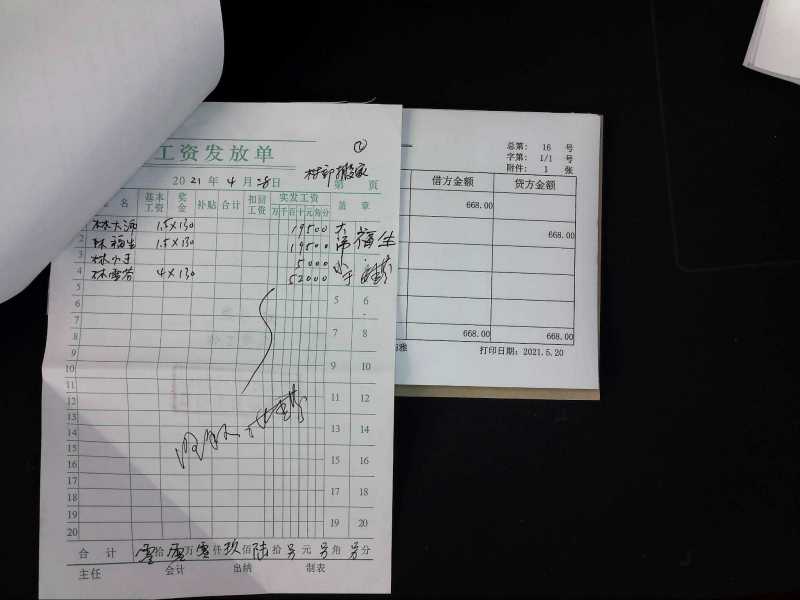 工资发放单
②
2021年4月28日
村部搬家
第 页
名 基本工资 奖金 补贴 合计 扣回工资 实发工资 盖章
万千百十元角分
林大沛 1.5×130 19500
2 林福生 1.5×130 19500 福生
3 林小玉 5000
4 林雪芳 4×130 52000
5 5 6
6
7 7 8
8
9 9 10
10
11 11 12
12
13 13 14
14
15 15 16
16
17 17 18
18
19 19 20
20
合计 零拾零万零仟玖佰陆拾另元另角另分
主任 会计 出纳 制表
总第: 16 号
字第: 1/1 号
附件: 1 张
借方金额 贷方金额
668.00
668.00
668.00 668.00
雅 打印日期: 2021.5.20